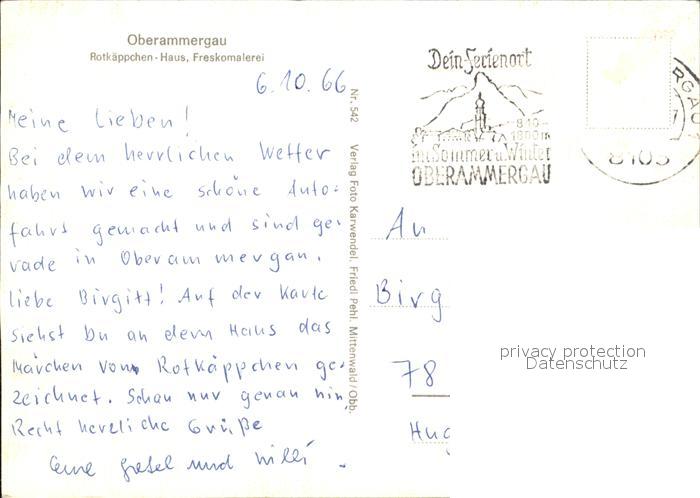 Oberammergau
Rotkäppchen-Haus, Freskomalerei
6.10.66
Meine Lieben!
Bei dem herrlichen Wetter
haben wir eine schöne Auto-
fahrt gemacht und sind ge-
rade in Oberammergau.
Liebe Birgitt! Auf der Karte
siehst Du an dem Haus das
Märchen vom Rotkäppchen ge-
zeichnet. Schau nur genau hin!
Recht herzliche Grüße
Eure Gretel und Willi.
Nr. 542 Verlag Foto Karwendel. Friedl Pehl. Mittenwald/Obb.
Dein Ferienort
840-
1800m
im Sommer u. Winter
OBERAMMERGAU
RGAU
8103
An
Birg
78
Hug
privacy protection
Datenschutz